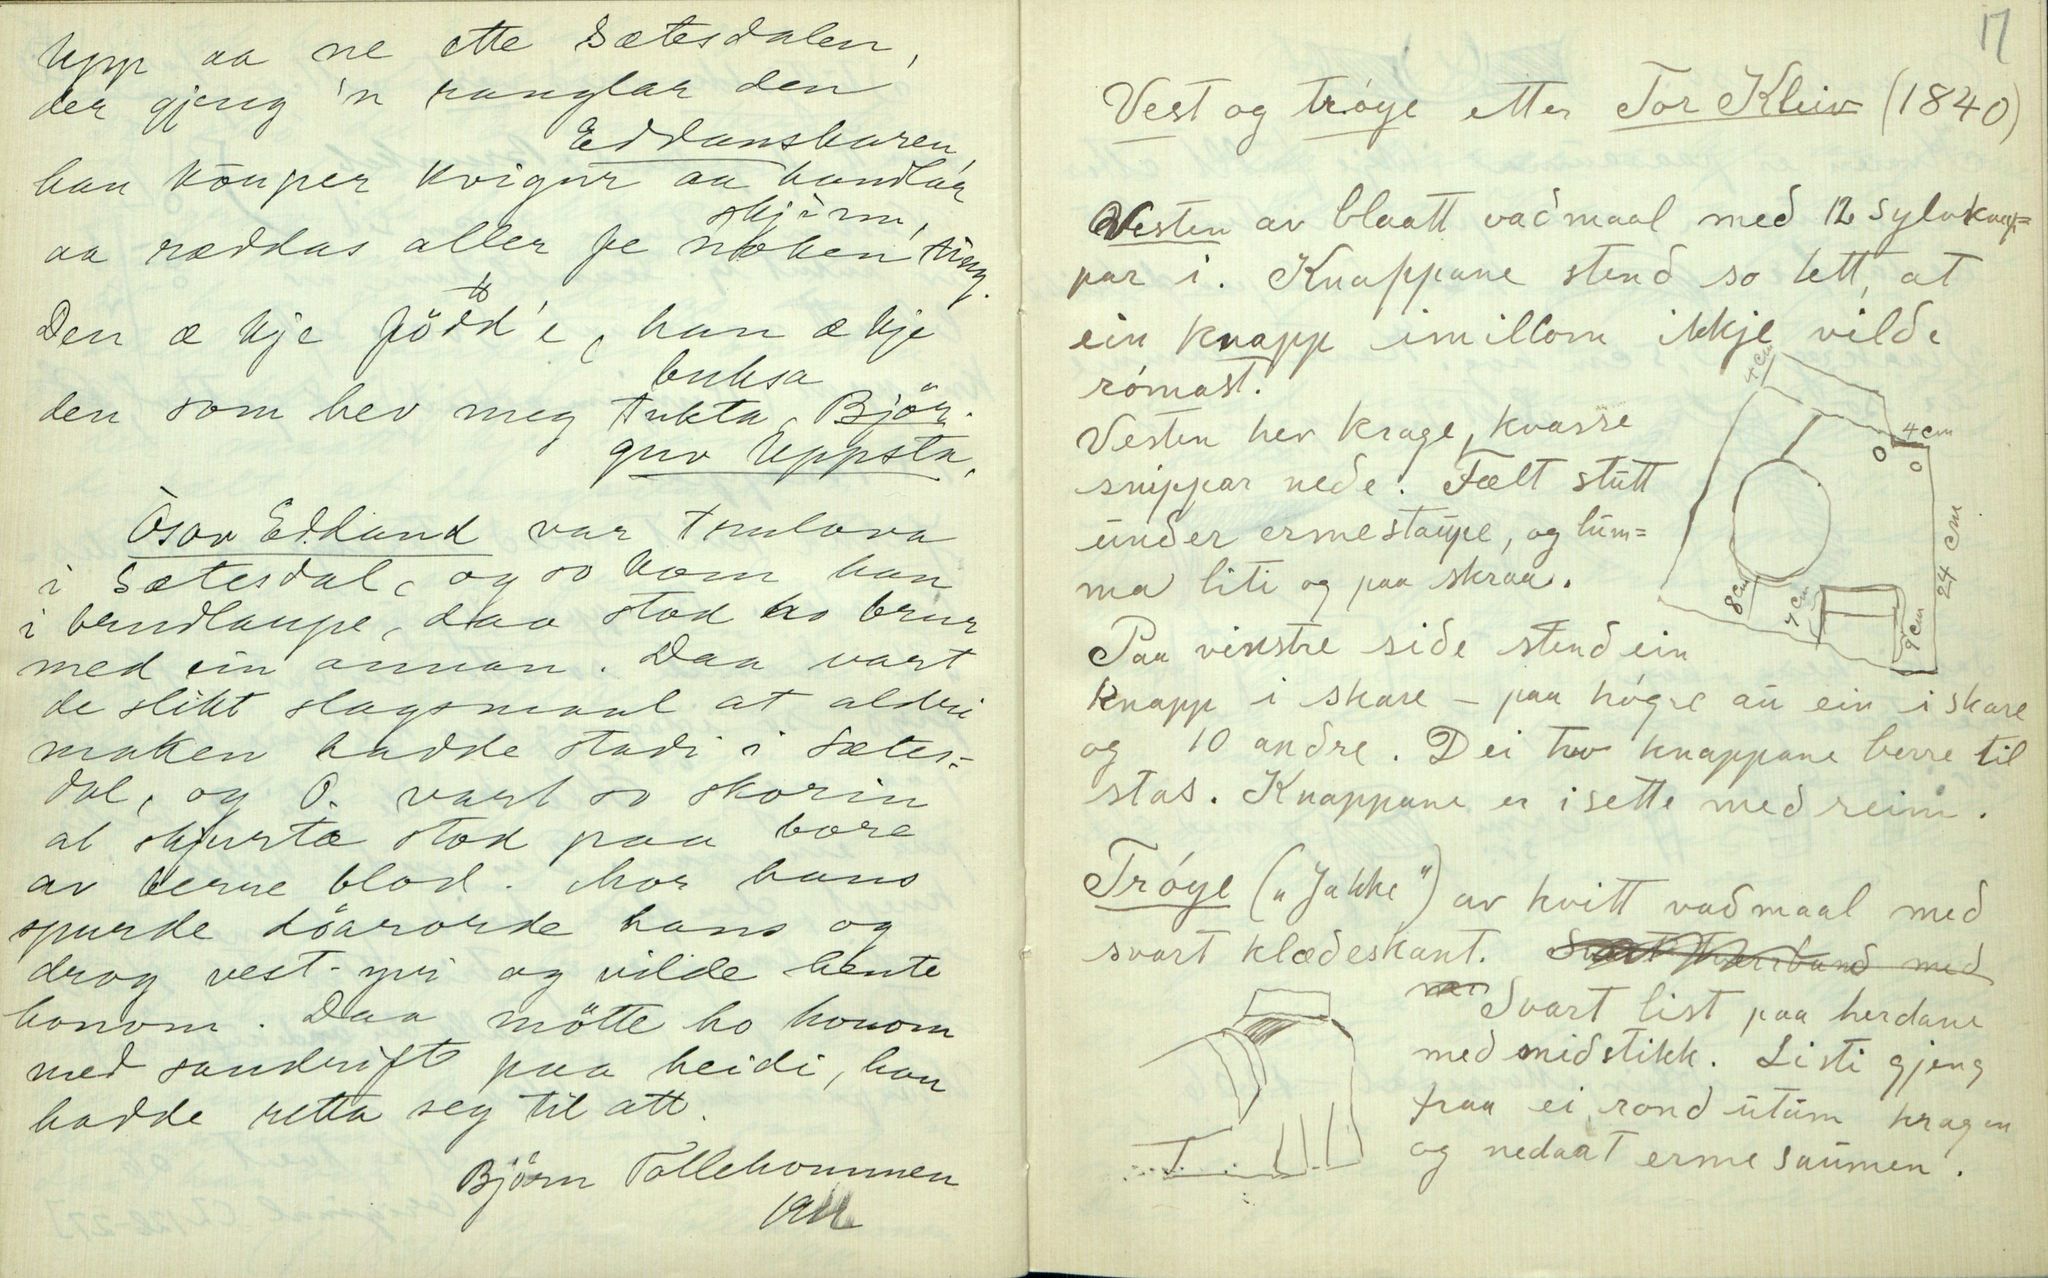 Upp aa ne ette Sætesdalen,
der gjeng 'n ranglar den
Eddansbaren,
han köuper kvigur aa handlar
skjirm,
aa ræddas aller fe noken ting.
Den æ kje född'e, han æ kje
den som hev meg buksa
tukta, Björ-
guv Uppsta,
Òsov Edland var
i Sætesdal, og so kom han
i brudlaupe, daa stod ho brur
med ein annan. Daa vart
de slikt slagsmaal at aldri
maken hadde stadi i Sætes-
dal, og O. vart so skorin
at skjurta stod paa bare
av berre blod. Mor hans
spurde döarorde hans og
drog vest-yvi og vilde hente
honom. Daa mötte ho honom
med sandrift paa heidi, han
hadde retta seg til att.
Björn Tallehommen
191
17
Vest og tróye etter Tor Kleiv (1840)
Vesten av blaatt vaðmaal með 12 sylvknap=
par i. Knappane stend so tett, at
ein knapp imillom ikkje vilde
rómast.
Vesten hev krage, kvasse
snippar neðe. Fælt stutt
under ermestaupe, og lum=
ma liti og paa skraa.
Paa vinstre siðe stend ein
knapp i skare – paa högre au ein i skare
og 10 andre. Dei hev knappane berre til
stas. Knappane er isette með reim.
4 cm
4 cm
24 cm
8 cm
7 cm
9 cm
Tróye („Jakke") av kvitt vaðmaal með
svart klædeskant. Svart tverrband með
Svart list paa herdane
með miðstikk. Listi gjeng
fraa ei rond utum kragen
og nedaat erme saumen.